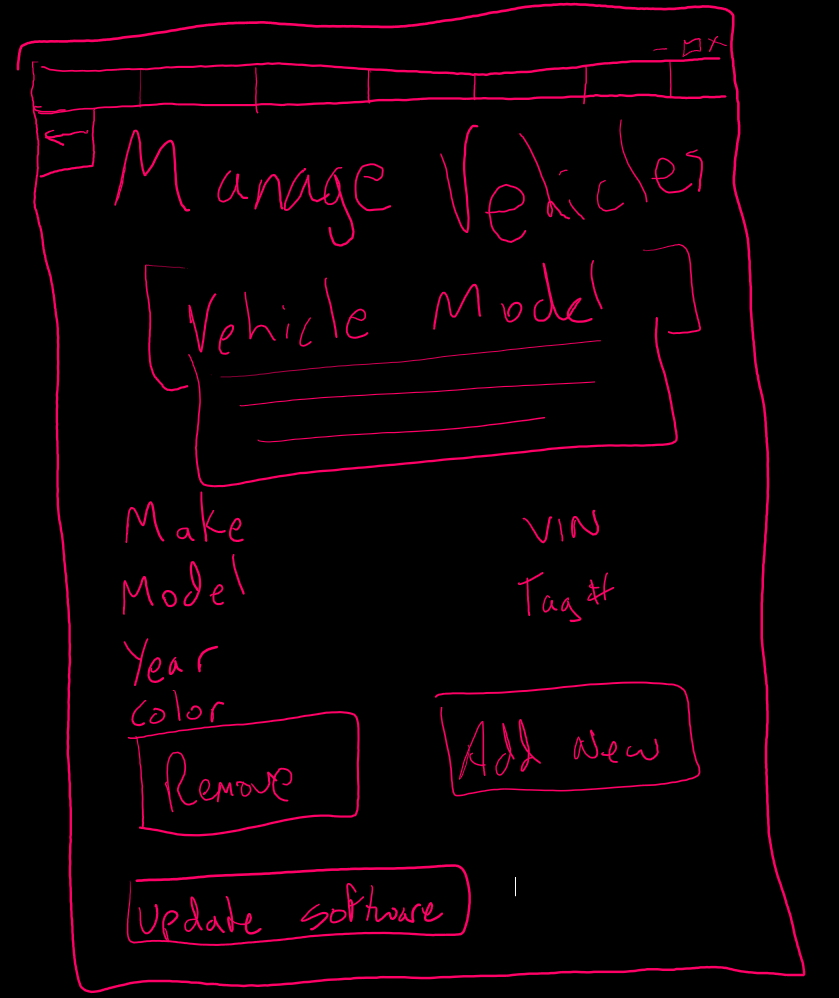 Manage Vehicles
Vehicle Model
Make VIN
Model Tag#
Year
Color
Remove Add New
Update Software